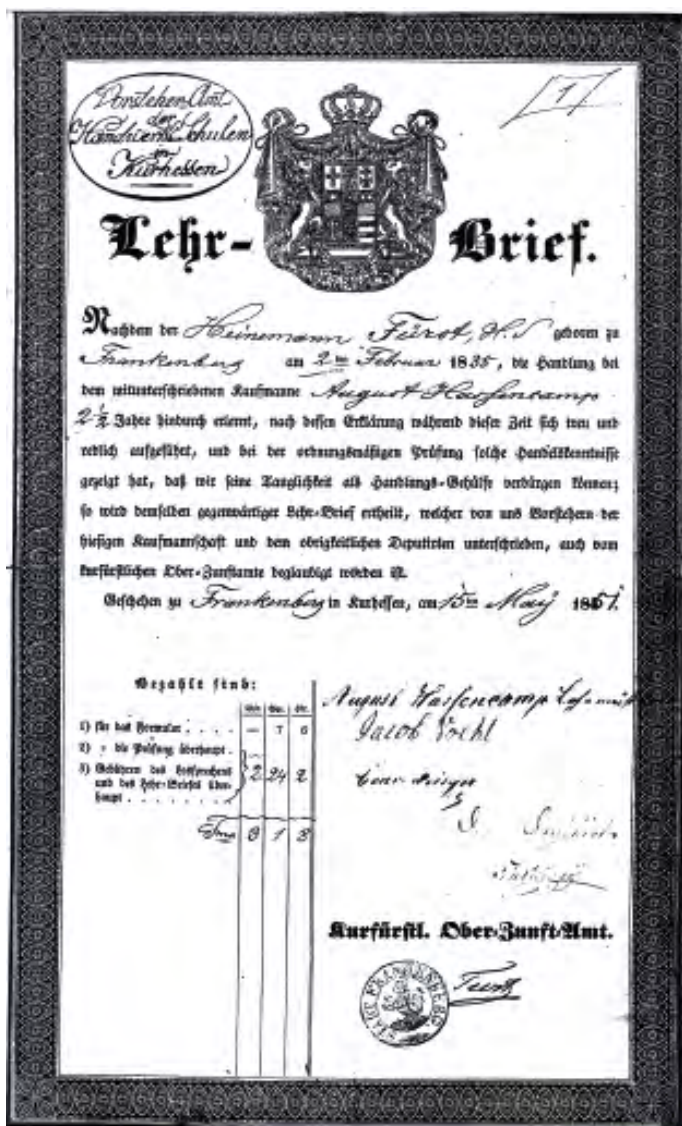 Vorsteher Amt
der
Handwerks Schulen
in
Kurhessen
1
Lehr-Brief.
Nachdem der Heinemann Fürst, geboren zu
Frankenberg am 2ten Februar 1835, die Handlung bei
dem mitunterschriebenen Kaufmanne August Hassencamp
2½ Jahre hindurch erlernt, nach dessen Erklärung während dieser Zeit sich treu und
redlich aufgeführt, und bei der ordnungsmäßigen Prüfung solche Handelskenntnisse
gezeigt hat, daß wir seine Tauglichkeit als Handlungs-Gehülfe verbürgen können;
so wird demselben gegenwärtiger Lehr-Brief ertheilt, welcher von uns Vorstehern der
hiesigen Kaufmannschaft und dem obrigkeitlichen Deputirten unterschrieben, auch vom
kurfürstlichen Ober-Zunftamte beglaubigt worden ist.
Geschehen zu Frankenberg in Kurhessen, am 15ten May 1851.
Bezahlt sind:
1) für das Formular . . . . — 7 6
2) " die Prüfung überhaupt .
3) Gebühren des Lossprechens
und des Lehr-Briefes über-
haupt . . . . . . . 2 24 2
3 1 8
August Hassencamp
Jacob
Kurfürstl. Ober-Zunft-Amt.
STADT FRANKENBERG